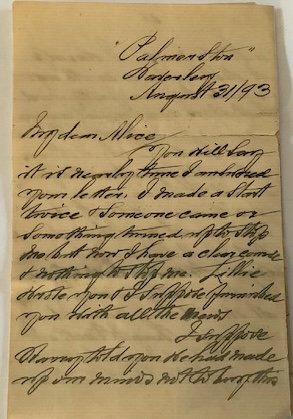 "Palmerston"
August 31/93
My dear Alice
You will say
it is nearly time I answered
your letter. I made a start
twice & someone came or
something turned up to stop
me but now I have a clear course
& nothing to stop me. Lillie
wrote you & I suppose furnished
you with all the news
I suppose
told you we had made
up our minds not to